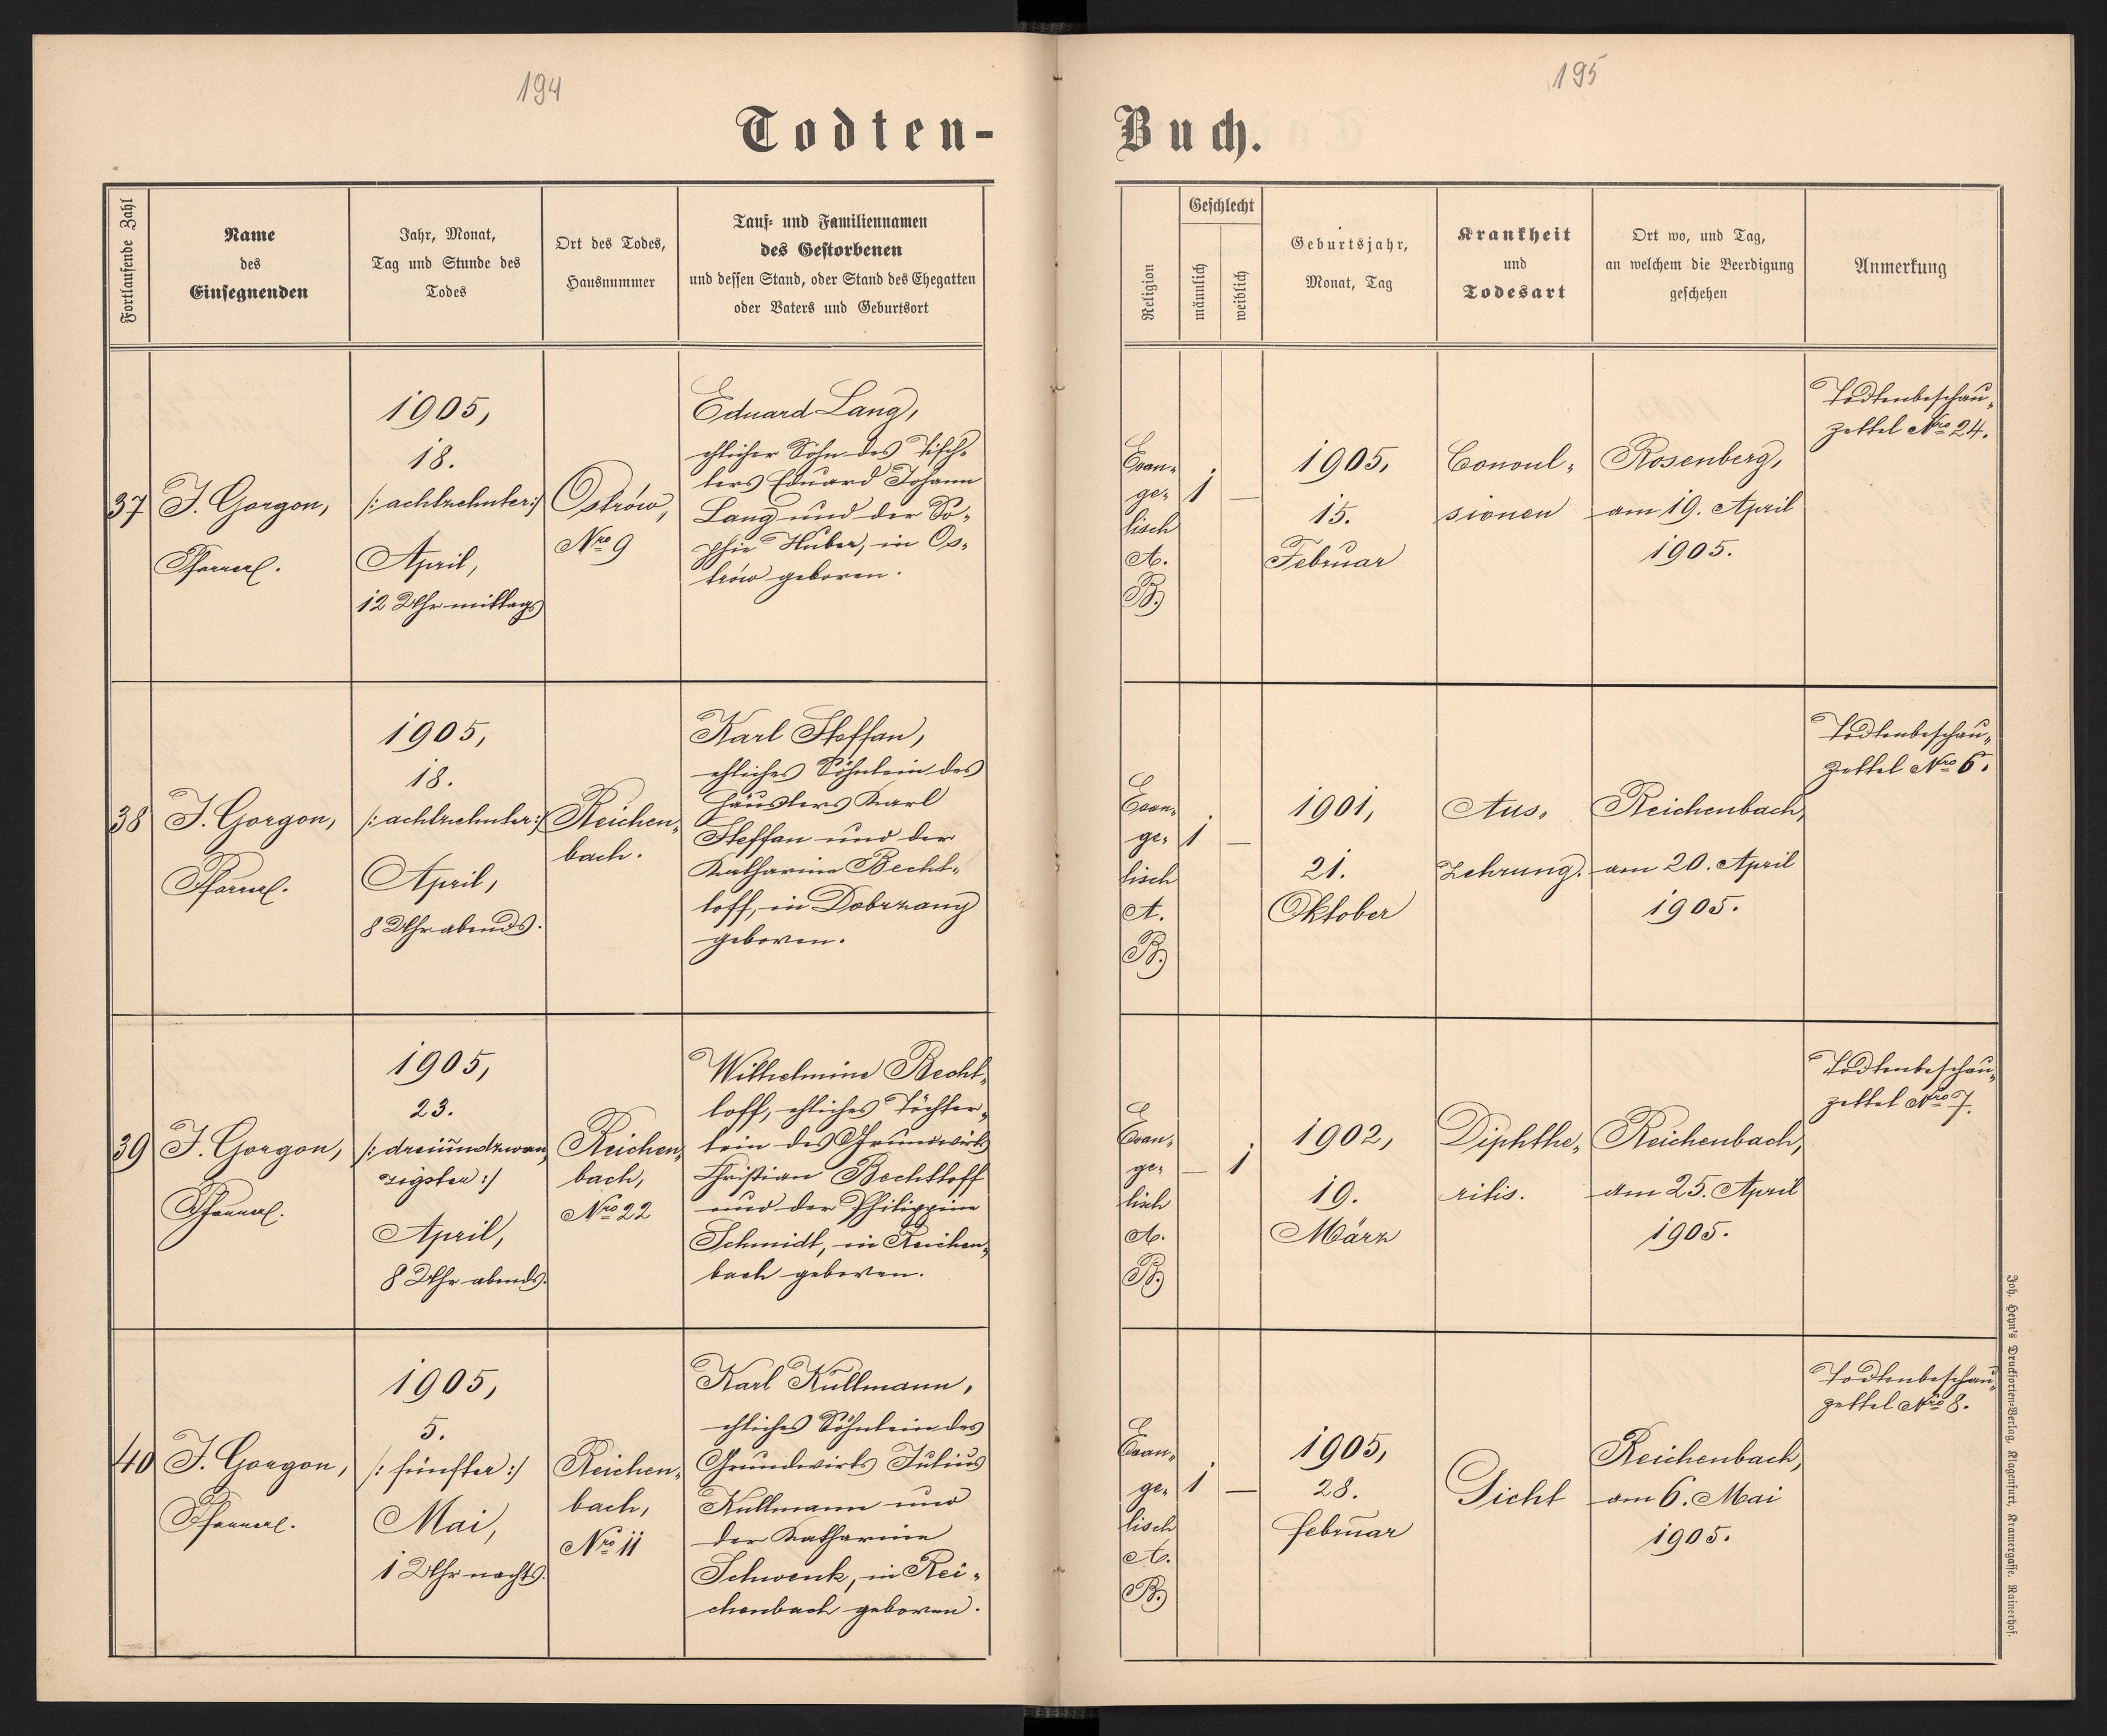 194
195
Todten-
Buch.
Fortlaufende Zahl
Name
des
Einsegnenden
Jahr, Monat,
Tag und Stunde des
Todes
Ort des Todes,
Hausnummer
Tauf- und Familiennamen
des Gestorbenen
und dessen Stand, oder Stand des Ehegatten
oder Vaters und Geburtsort
Religion
Geschlecht
männlich
weiblich
Geburtsjahr,
Monat, Tag
Krankheit
und
Todesart
Ort wo, und Tag,
an welchem die Beerdigung
geschehen
Anmerkung
37
J. Gorgon,
Pfarrer.
1905,
18.
/: achtzehnter :/
April,
12 Uhr mittags
Ostrów,
Nro 9
Eduard Lang,
ehlicher Sohn des Tisch-
lers Eduard Johann
Lang und der So-
phie Huber, in Os-
trów geboren.
Evan-
ge-
lisch
A.
B.
1
—
1905,
15.
Februar
Convul-
sionen
Rosenberg,
am 19. April
1905.
Todtenbeschau-
zettel Nro 24.
38
J. Gorgon,
Pfarrer.
1905,
18.
/: achtzehnter :/
April,
8 Uhr abends.
Reichen-
bach.
Karl Steffan,
ehliches Söhnlein des
Häuslers Karl
Steffan und der
Katharine Becht-
loff, in Dobrzany
geboren.
Evan-
ge-
lisch
A.
B.
1
—
1901,
21.
Oktober
Aus-
zehrung.
Reichenbach,
am 20. April
1905.
Todtenbeschau-
zettel Nro 6.
39
J. Gorgon,
Pfarrer.
1905,
23.
/: dreiundzwan-
zigster :/
April,
8 Uhr abends.
Reichen-
bach,
Nro 22
Wilhelmine Becht-
loff, ehliches Töchter-
lein des Grundwirts
Christian Bechtloff
und der Philippine
Schmidt, in Reichen-
bach geboren.
Evan-
ge-
lisch
A.
B.
—
1
1902,
19.
März
Diphthe-
ritis.
Reichenbach,
am 25. April
1905.
Todtenbeschau-
zettel Nro 7.
40
J. Gorgon,
Pfarrer.
1905,
5.
/: fünfter :/
Mai,
1 Uhr nachts.
Reichen-
bach,
Nro 11
Karl Kullmann,
ehliches Söhnlein des
Grundwirts Julius
Kullmann und
der Katharine
Schwenk, in Rei-
chenbach geboren.
Evan-
ge-
lisch
A.
B.
1
—
1905,
28.
Februar
Gicht
Reichenbach,
am 6. Mai
1905.
Todtenbeschau-
zettel Nro 8.
Joh. Heyn's Drucksorten-Verlag, Klagenfurt, Kramergasse. Rainerhof.